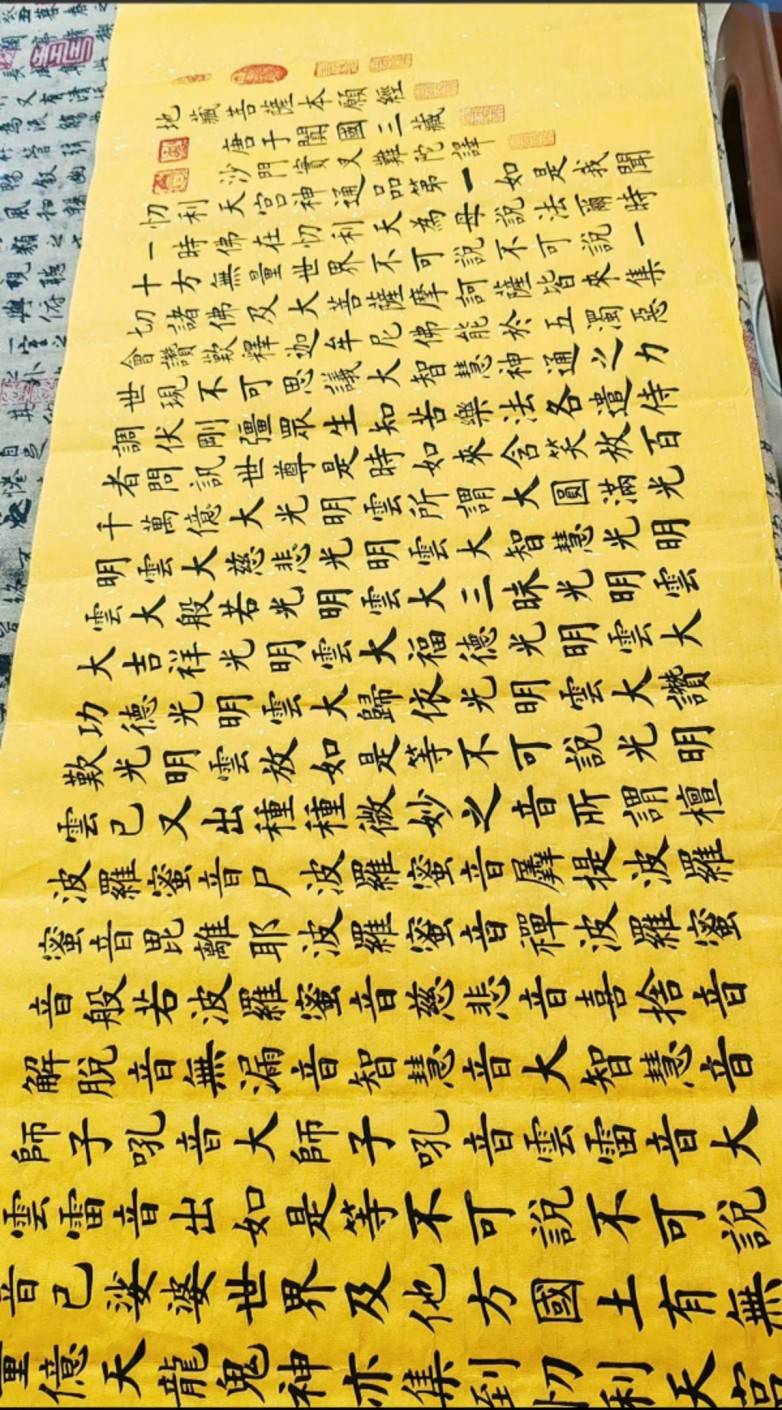 地藏菩薩本願經
唐于闐國三藏
沙門實叉難陀譯
忉利天宮神通品第一如是我聞
一時佛在忉利天為母說法爾時
十方無量世界不可說不可說一
切諸佛及大菩薩摩訶薩皆來集
會讚歎釋迦牟尼佛能於五濁惡
世現不可思議大智慧神通之力
調伏剛彊眾生知苦樂法各遣侍
者問訊世尊是時如來含笑放百
千萬億大光明雲所謂大圓滿光
明雲大慈悲光明雲大智慧光明
雲大般若光明雲大三昧光明雲
大吉祥光明雲大福德光明雲大
功德光明雲大歸依光明雲大讚
歎光明雲放如是等不可說光明
雲已又出種種微妙之音所謂檀
波羅蜜音尸波羅蜜音羼提波羅
蜜音毘離耶波羅蜜音禪波羅蜜
音般若波羅蜜音慈悲音喜捨音
解脫音無漏音智慧音大智慧音
師子吼音大師子吼音雲雷音大
雲雷音出如是等不可說不可說
音已娑婆世界及他方國土有無
量億天龍鬼神亦集到忉利天宮